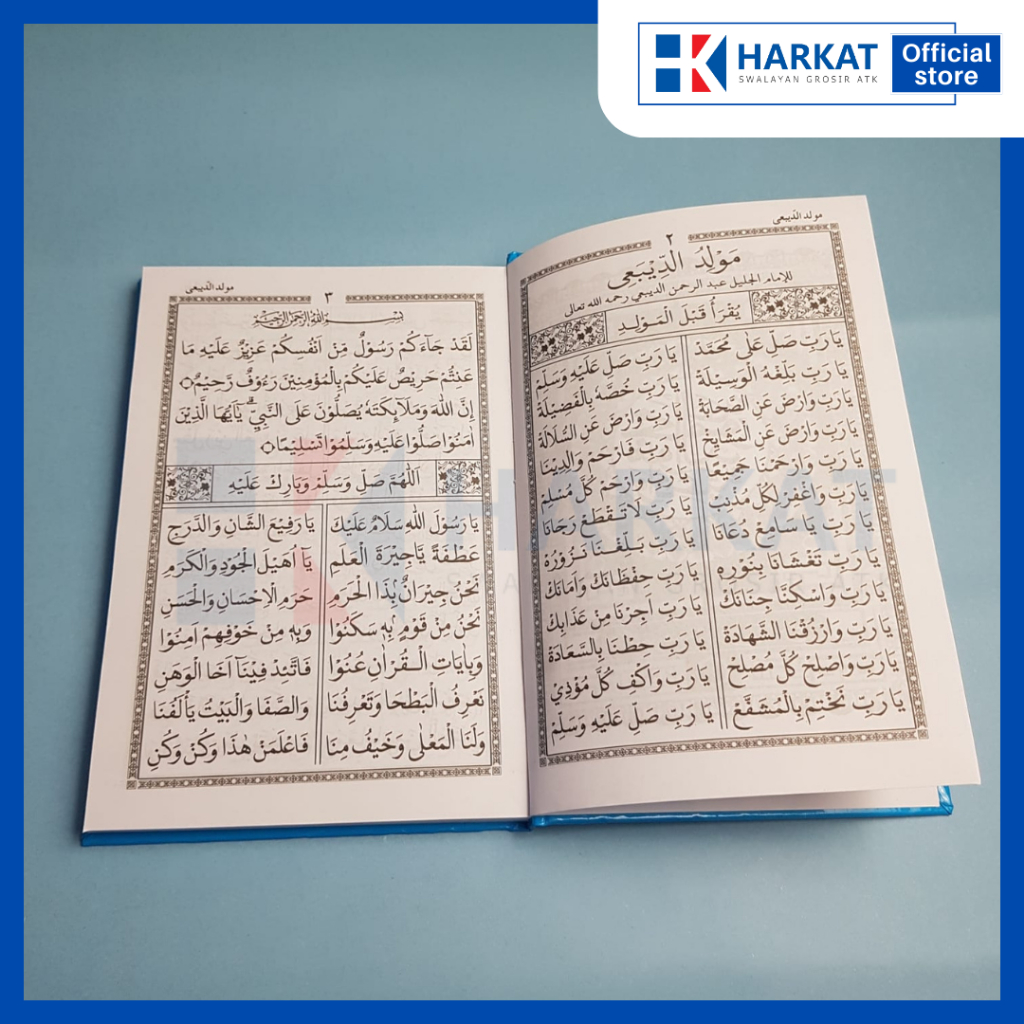 HARKAT
SWALAYAN GROSIR ATK
Official
store
مولد الديبعى
٢
مَوْلِدُ الدِّيْبَعِى
للإمام الجليل عبد الرحمن الديبعى رحمه الله تعالى
يُقْرَأُ قَبْلَ الْمَوْلِدِ
يَا رَبِّ صَلِّ عَلَى مُحَمَّدْ يَا رَبِّ صَلِّ عَلَيْهِ وَسَلِّمْ
يَا رَبِّ بَلِّغْهُ الْوَسِيْلَةْ يَا رَبِّ خُصَّهُ بِالْفَضِيْلَةْ
يَا رَبِّ وَارْضَ عَنِ الصَّحَابَةْ يَا رَبِّ وَارْضَ عَنِ السُّلَالَةْ
يَا رَبِّ وَارْضَ عَنِ الْمَشَايِخْ يَا رَبِّ فَارْحَمْ وَالِدِيْنَا
يَا رَبِّ وَارْحَمْنَا جَمِيْعًا يَا رَبِّ وَارْحَمْ كُلَّ مُسْلِمْ
يَا رَبِّ وَاغْفِرْ لِكُلِّ مُذْنِبْ يَا رَبِّ لَا تَقْطَعْ رَجَانَا
يَا رَبِّ يَا سَامِعْ دُعَانَا يَا رَبِّ بَلِّغْنَا نَزُوْرُهْ
يَا رَبِّ تَغْشَانَا بِنُوْرِهْ يَا رَبِّ حِفْظَانَكْ وَامَانَكْ
يَا رَبِّ وَاسْكِنَّا جِنَانَكْ يَا رَبِّ اَجِرْنَا مِنْ عَذَابِكْ
يَا رَبِّ وَارْزُقْنَا الشَّهَادَةْ يَا رَبِّ حِطْنَا بِالسَّعَادَةْ
يَا رَبِّ وَاصْلِحْ كُلَّ مُصْلِحْ يَا رَبِّ وَاكْفِ كُلَّ مُؤْذِيْ
يَا رَبِّ نَخْتِمْ بِالْمُشَفَّعْ يَا رَبِّ صَلِّ عَلَيْهِ وَسَلِّمْ
مولد الديبعى
٣
بِسْمِ اللهِ الرَّحْمٰنِ الرَّحِيْمِ
لَقَدْ جَآءَكُمْ رَسُوْلٌ مِّنْ اَنْفُسِكُمْ عَزِيْزٌ عَلَيْهِ مَا
عَنِتُّمْ حَرِيْصٌ عَلَيْكُمْ بِالْمُؤْمِنِيْنَ رَءُوْفٌ رَّحِيْمٌ
اِنَّ اللهَ وَمَلَآئِكَتَهٗ يُصَلُّوْنَ عَلَى النَّبِيِّ يٰٓاَيُّهَا الَّذِيْنَ
اٰمَنُوْا صَلُّوْا عَلَيْهِ وَسَلِّمُوْا تَسْلِيْمًا
اَللّٰهُمَّ صَلِّ وَسَلِّمْ وَبَارِكْ عَلَيْهِ
يَا رَسُوْلَ اللهِ سَلَامٌ عَلَيْكَ يَا رَفِيْعَ الشَّانِ وَالدَّرَجِ
عَطْفَةً يَّاجِيْرَةَ الْعَلَمِ يَآ اُهَيْلَ الْجُوْدِ وَالْكَرَمِ
نَحْنُ جِيْرَانٌ بِذَا الْحَرَمِ حَرَمِ الْاِحْسَانِ وَالْحَسَنِ
نَحْنُ مِنْ قَوْمٍ بِهٖ سَكَنُوْا وَبِهٖ مِنْ خَوْفِهِمْ اَمِنُوْا
وَبِاٰيَاتِ الْقُرْاٰنِ عُنُوْا فَاتَّئِدْ فِيْنَآ اَخَا الْوَهَنِ
نَعْرِفُ الْبَطْحَا وَتَعْرِفُنَا وَالصَّفَا وَالْبَيْتُ يَأْلَفُنَا
وَلَنَا الْمَعْلٰى وَخَيْفُ مِنَا فَاعْلَمَنْ هٰذَا وَكُنْ وَكُنِ
HARKAT